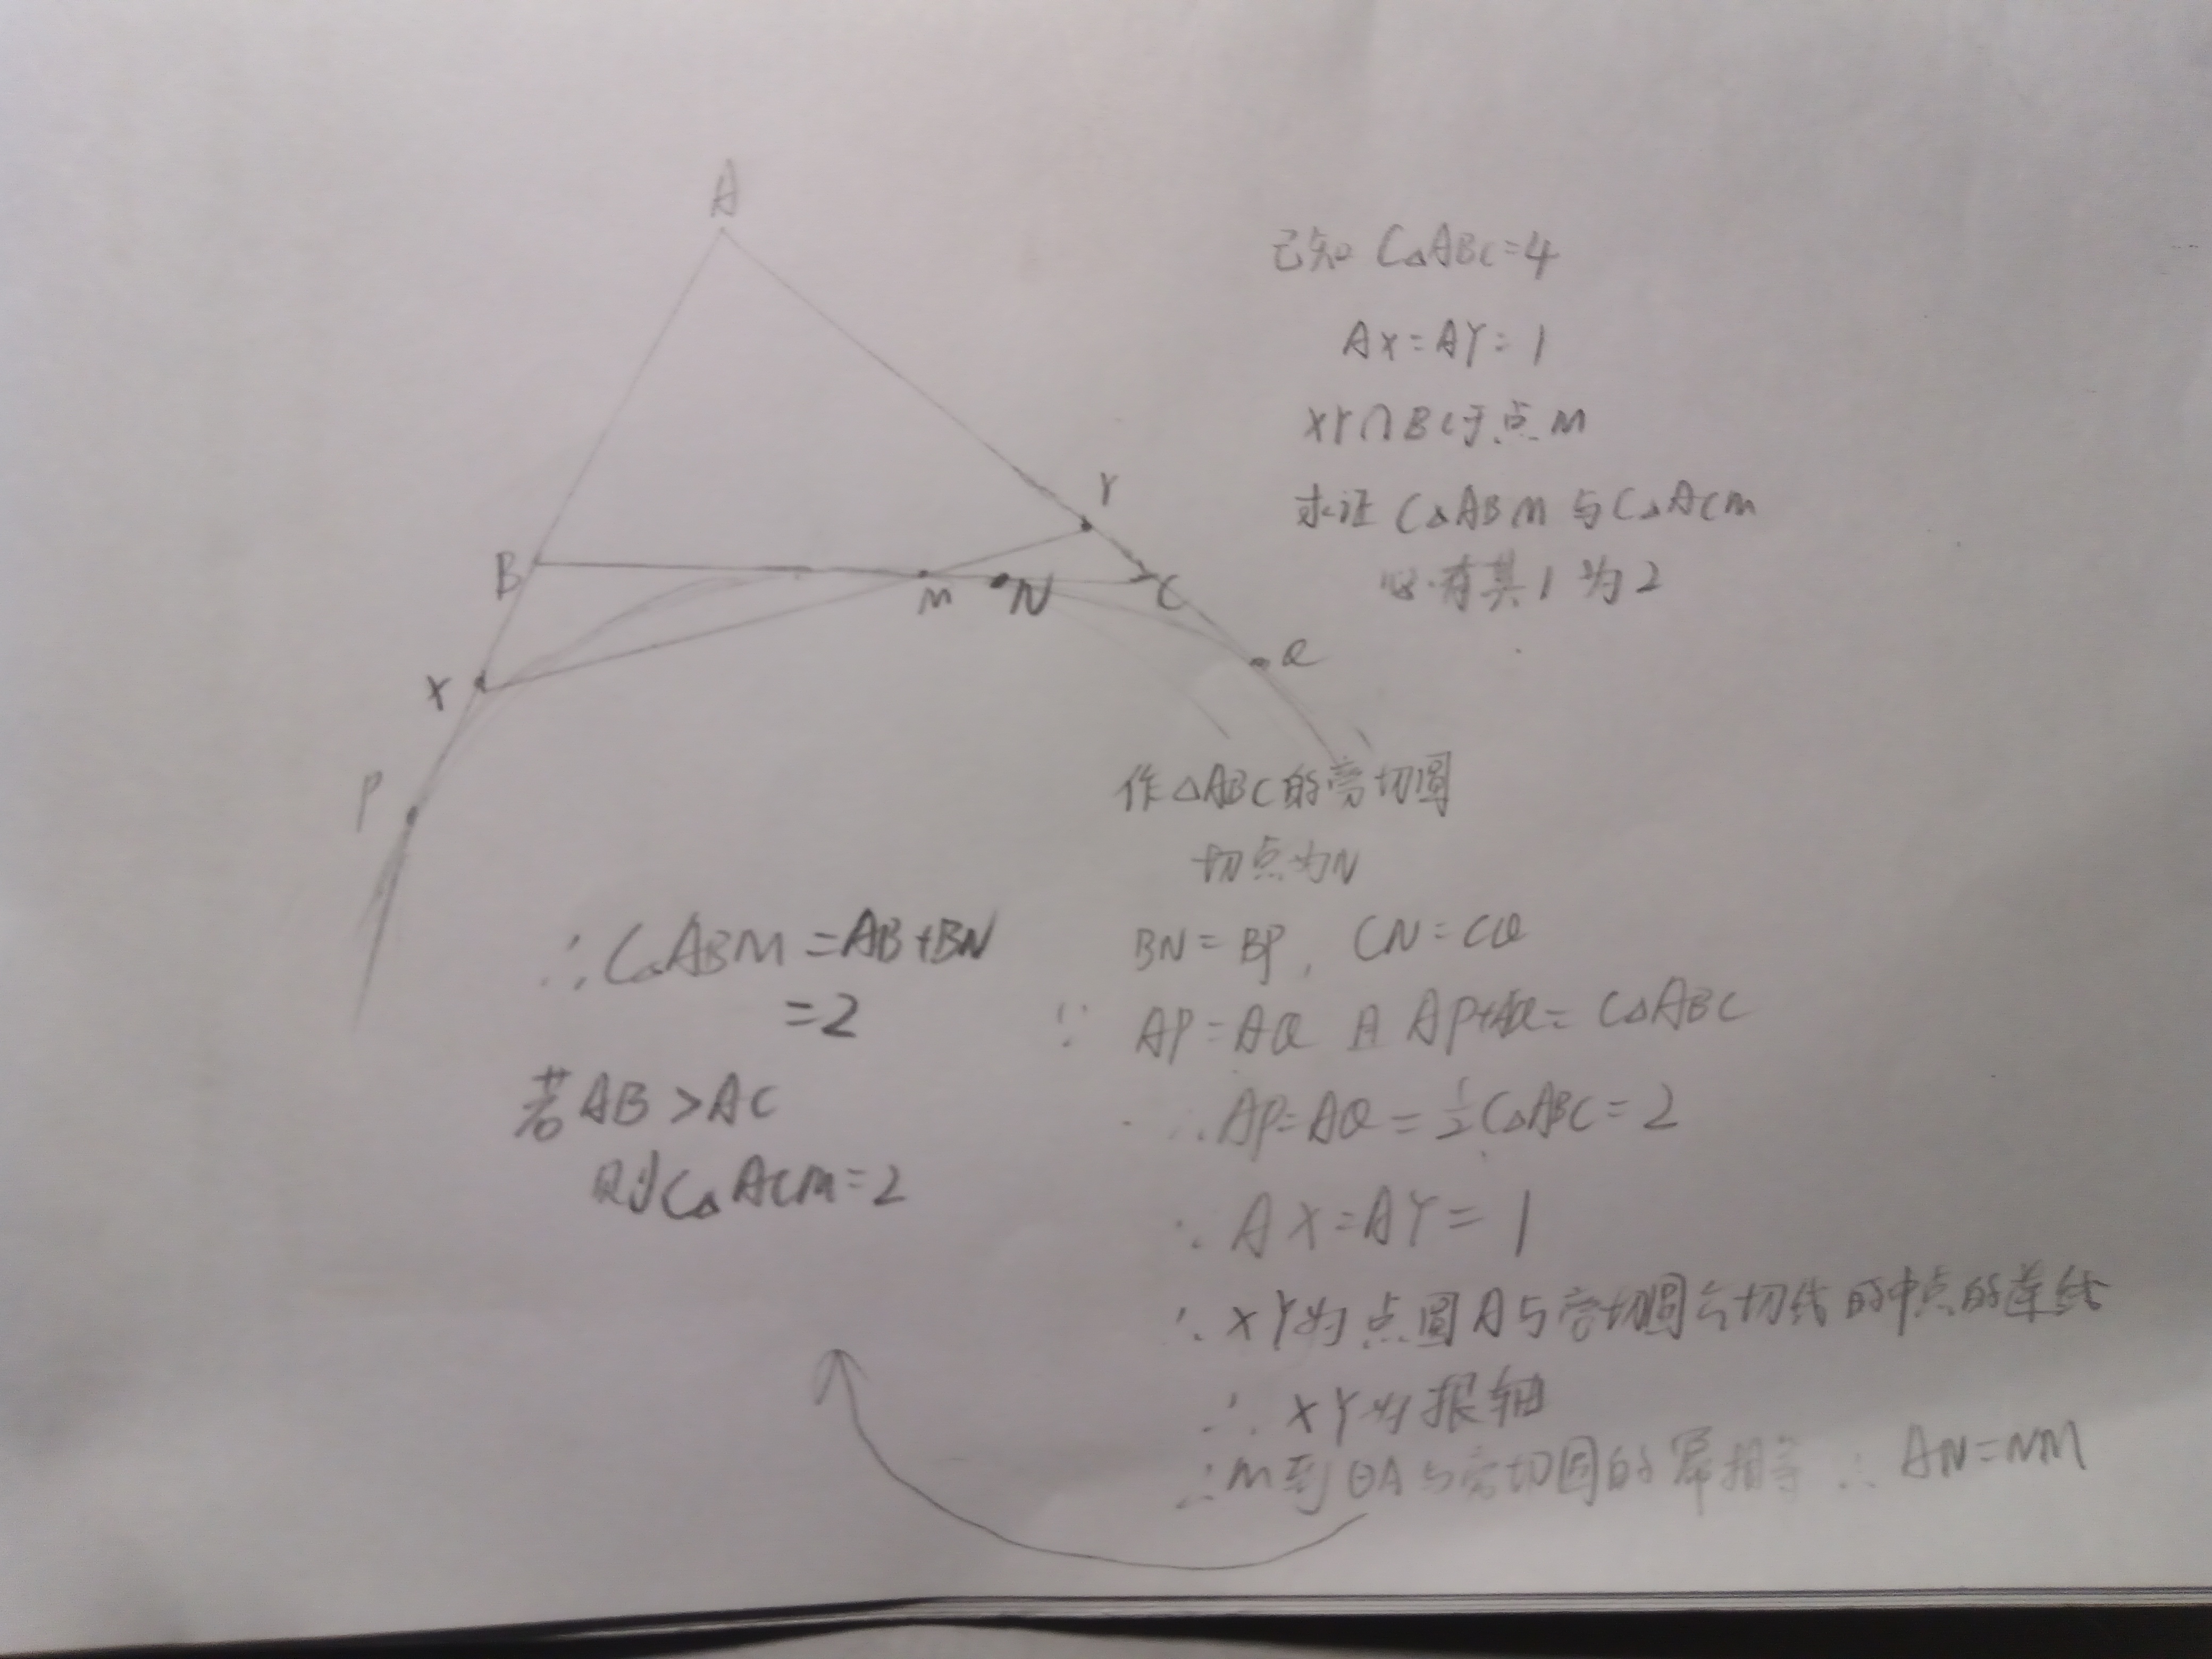 A
Y
B
M
N
C
X
Q
P
已知 C△ABC=4
AX=AY=1
XY∩BC于点M
求证 C△ABM与C△ACM
必有其1为2
作△ABC的旁切圆
切点为N
BN=BP, CN=CQ
∵ AP=AQ 且 AP+AQ=C△ABC
∴AP=AQ=½C△ABC=2
∵AX=AY=1
∴XY为点圆A与旁切圆公切线的中点的连线
∴XY为根轴
∴M到⊙A与旁切圆的幂相等 ∴AN=NM
∴C△ABM=AB+BN
=2
若AB>AC
则C△ACM=2